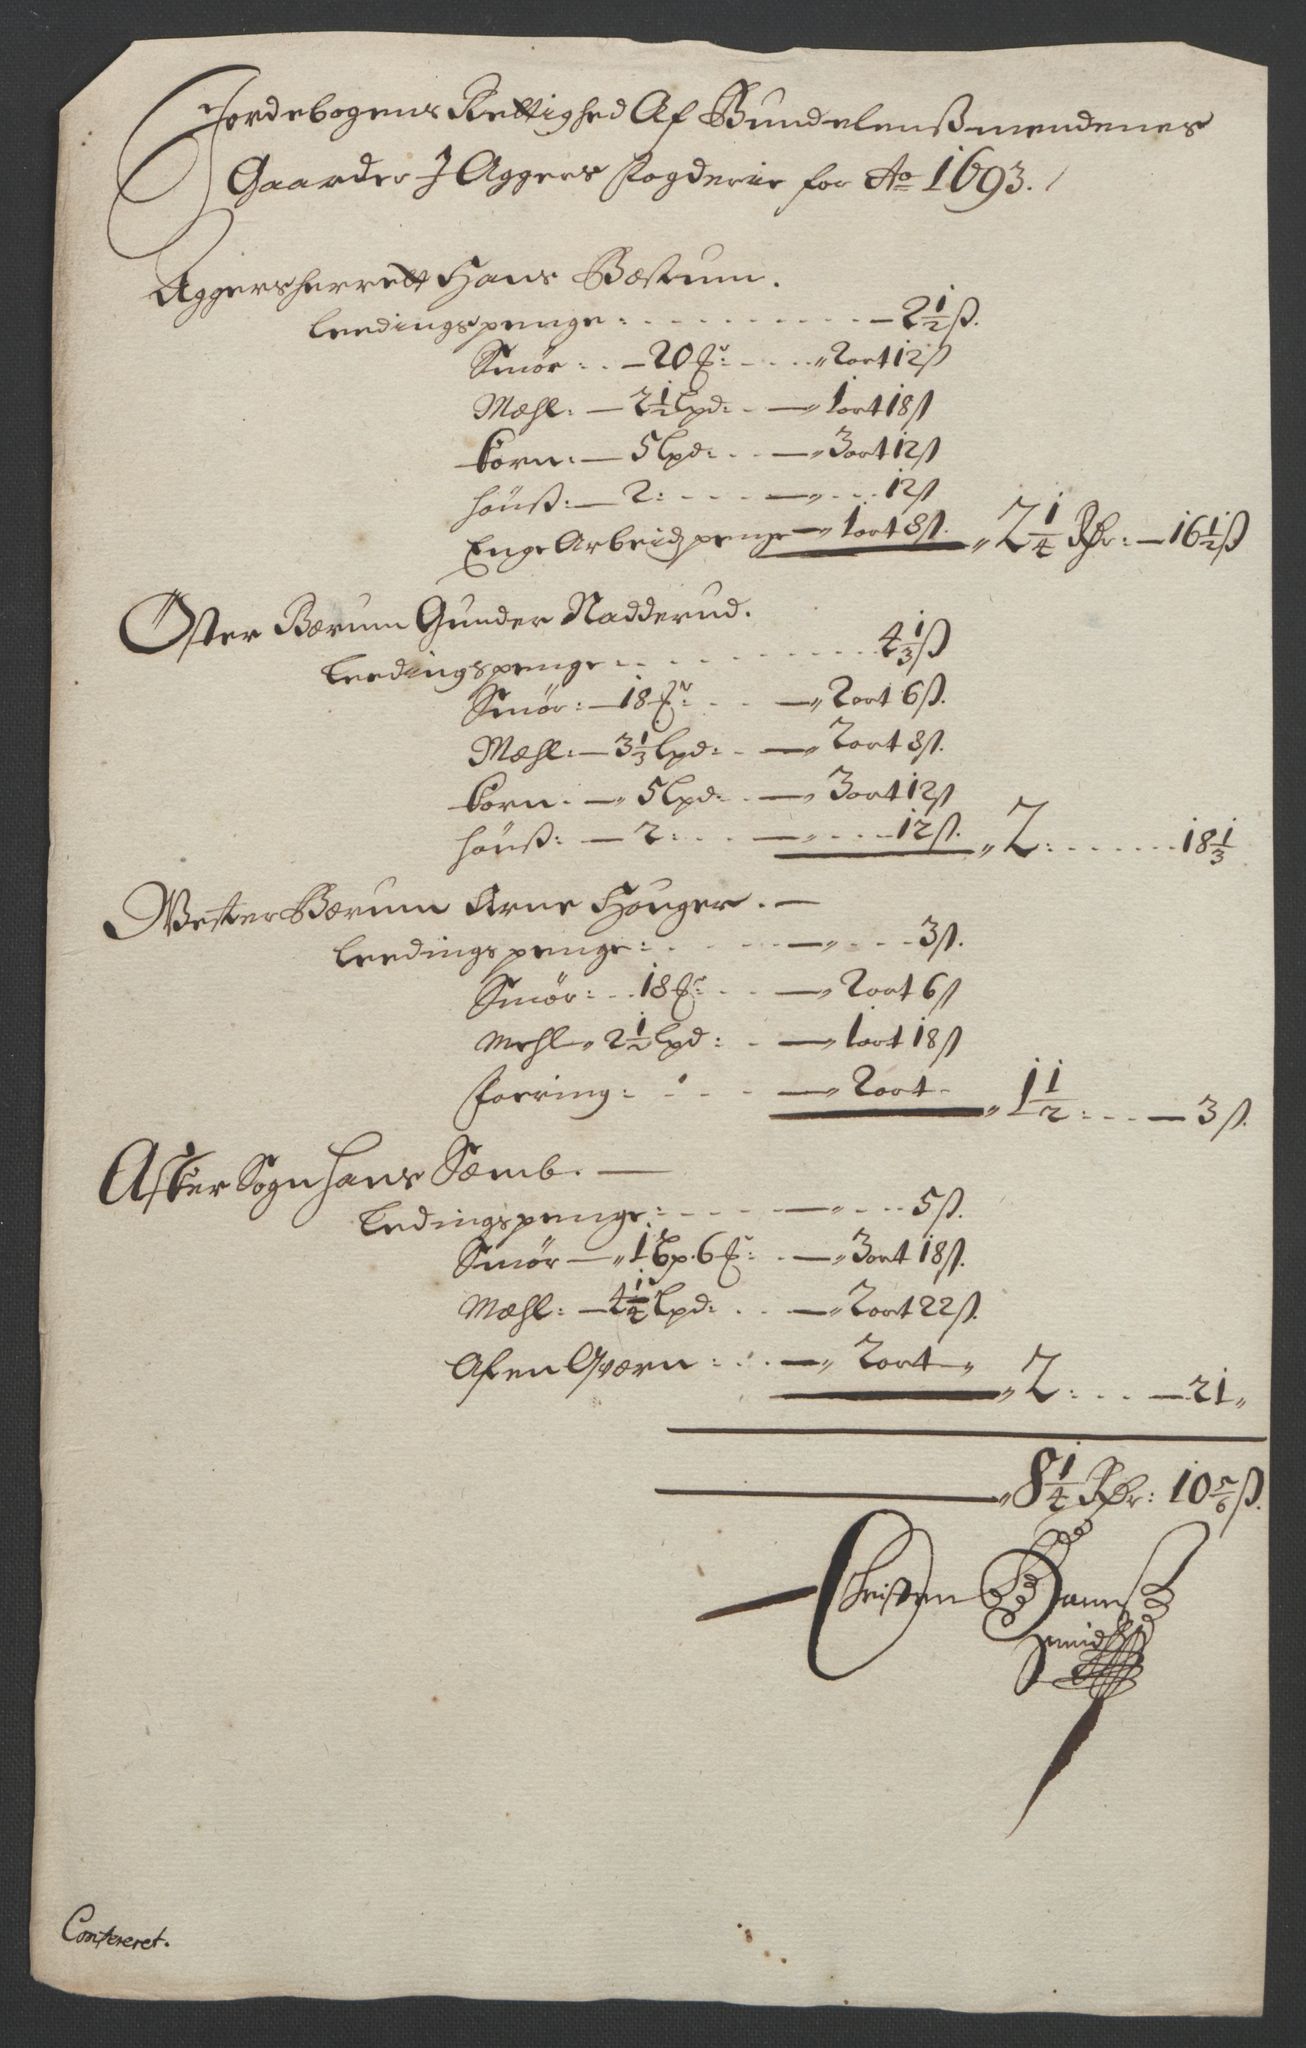 Jordebogens Rettighed Af Bundelenßmendenes
Gaarder J Aggers fogderie for Ao 1693.
Aggersherrett Hans Bæstum.
Leedingspenge: - - - 2 1/2 ß.
Smør: - 20 - - 2 ort 12 ß
Mæhl: - 2 1/2 Lpd: - 1 ort 18 ß
Korn: - 5 Lpd: - 3 ort 12 ß
Hønß: - 2: - - 12 ß
Enge Arbeidspenge - 1 ort 8 ß. 2 1/4 Rdr: - 16 1/2 ß
Øster Bærum Gunder Nadderud.
Leedingspenge: - - 4 1/3 ß
Smør: - 18 - - 2 ort 6 ß.
Mæhl: - 3 1/3 Lpd: - 2 ort 8 ß.
Korn. - 5 Lpd: - 3 ort 12 ß
Hønß: - 2: - - 12 ß. 2: - - 18 1/3
Wester Bærum Arne Houger. -
Leedingspenge: - - 3 ß.
Smør: - 18 - - 2 ort 6 ß
Mehl - 2 1/2 Lpd: - 1 ort 18 ß
Foering: - - 2 ort - 1 1/2: - - 3 ß.
Asker Sogn Hans Sæmb. -
Ledingspenge: - - 5 ß.
Smør - 1 Bp. 6 - 3 ort 18 ß.
Mæhl: - 4 1/4 Lpd: - 2 ort 22 ß.
Af en Qværn: - 2 ort 2: - - 21
8 1/4 Rdr: 10 5/6 ß.
Christen
Smid
Confereret.